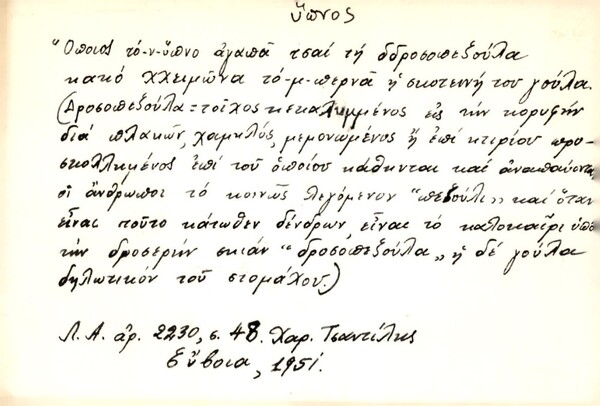 ὕπνος
"Ὅποιος τό-ν-ὕπνο ἀγαπᾶ τσαί τή δδροσοπεζούλα
κακό χχειμῶνα τό-μ-περνᾶ ἡ σκοτεινή του γούλα.
(Δροσοπεζούλα = τοῖχος κεκαλυμμένος εἰς τήν κορυφήν
διά πλακῶν, χαμηλός, μεμονωμένος ἤ ἐπί κτιρίου προσ-
κολλημένος ἐπί τοῦ ὁποίου κάθηνται καί ἀναπαύονται
οἱ ἄνθρωποι τό κοινῶς λεγόμενον "πεζούλι" καί ὅταν
εἶναι τοῦτο κάτωθεν δένδρων, εἶναι τό καλοκαῖρι ὑπό
τήν δροσερήν σκιάν "δροσοπεζούλα" ἡ δέ γούλα
δηλωτικόν τοῦ στομάχου.)
Λ.Α. ἀρ. 2230, σ. 48. Χαρ. Τσαντίλης
Εὔβοια, 1951.